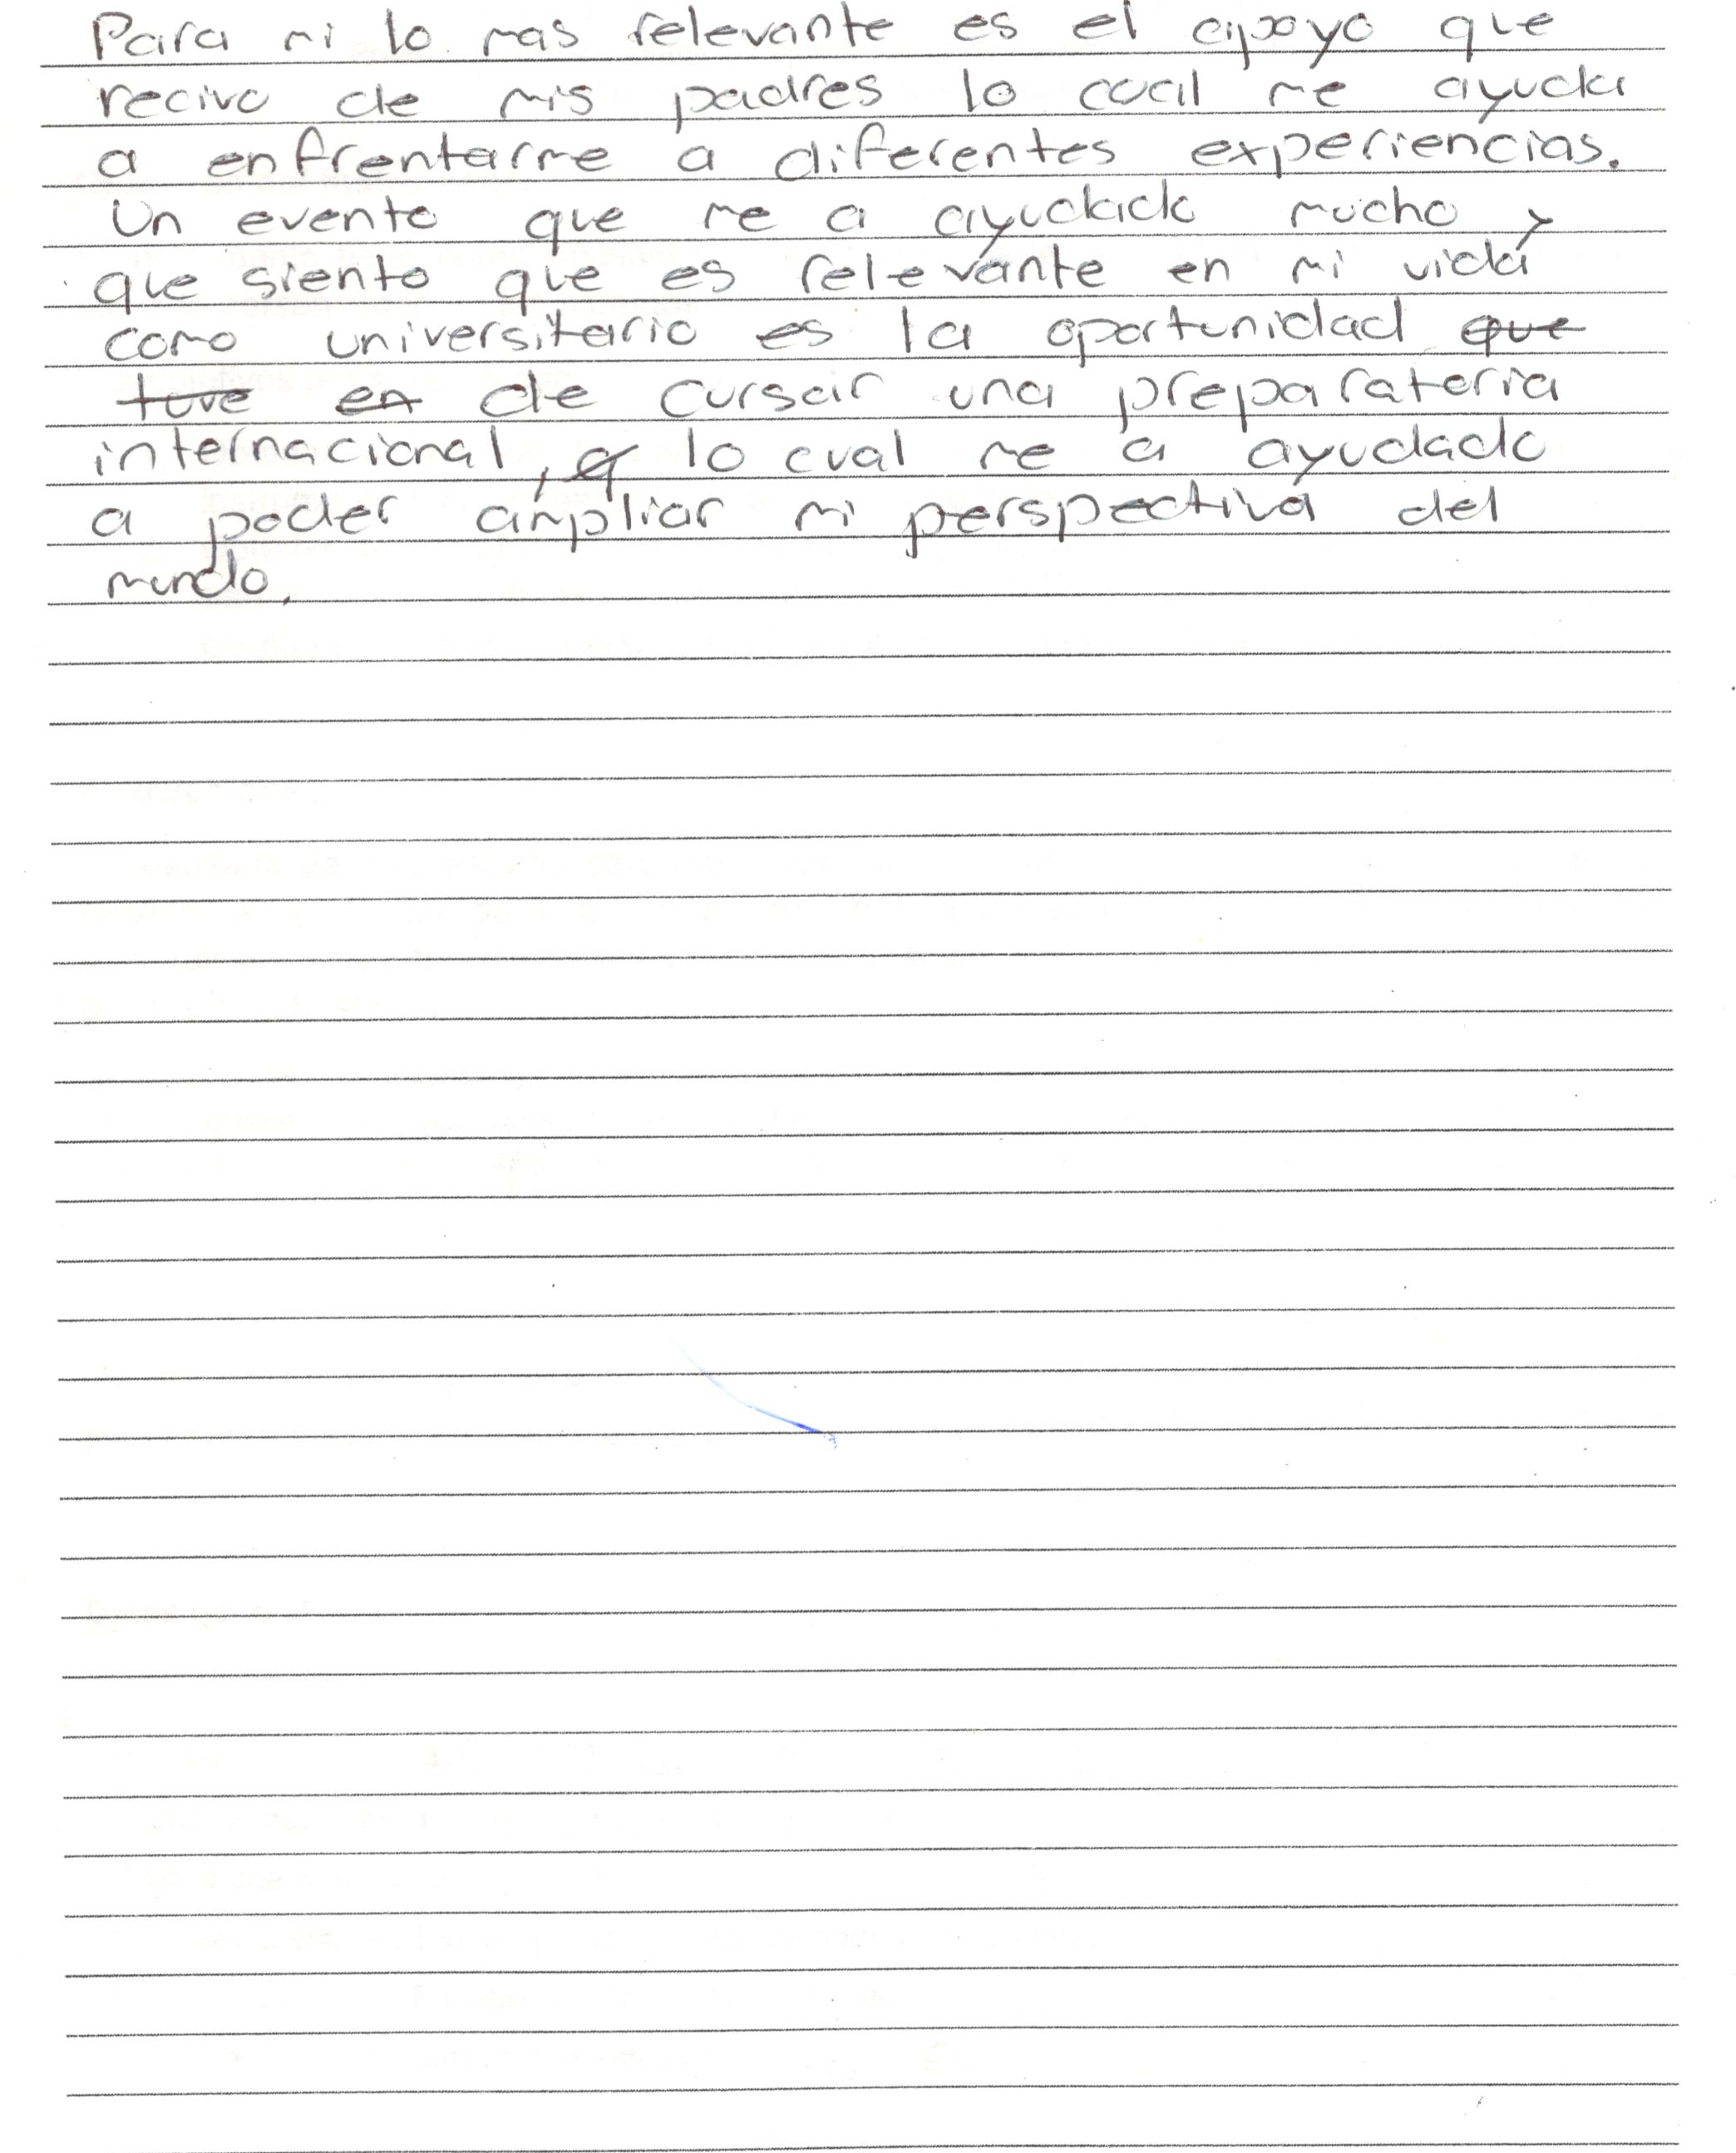 Para mi lo mas relevante es el apoyo que
recivo de mis padres lo cual me ayuda
a enfrentarme a diferentes experiencias.
Un evento que me a ayudado mucho y
que siento que es relevante en mi vida
como universitario es la oportunidad que
tuve en de cursar una preparatoria
internacional, q lo cual me a ayudado
a poder ampliar mi perspectiva del
mundo.